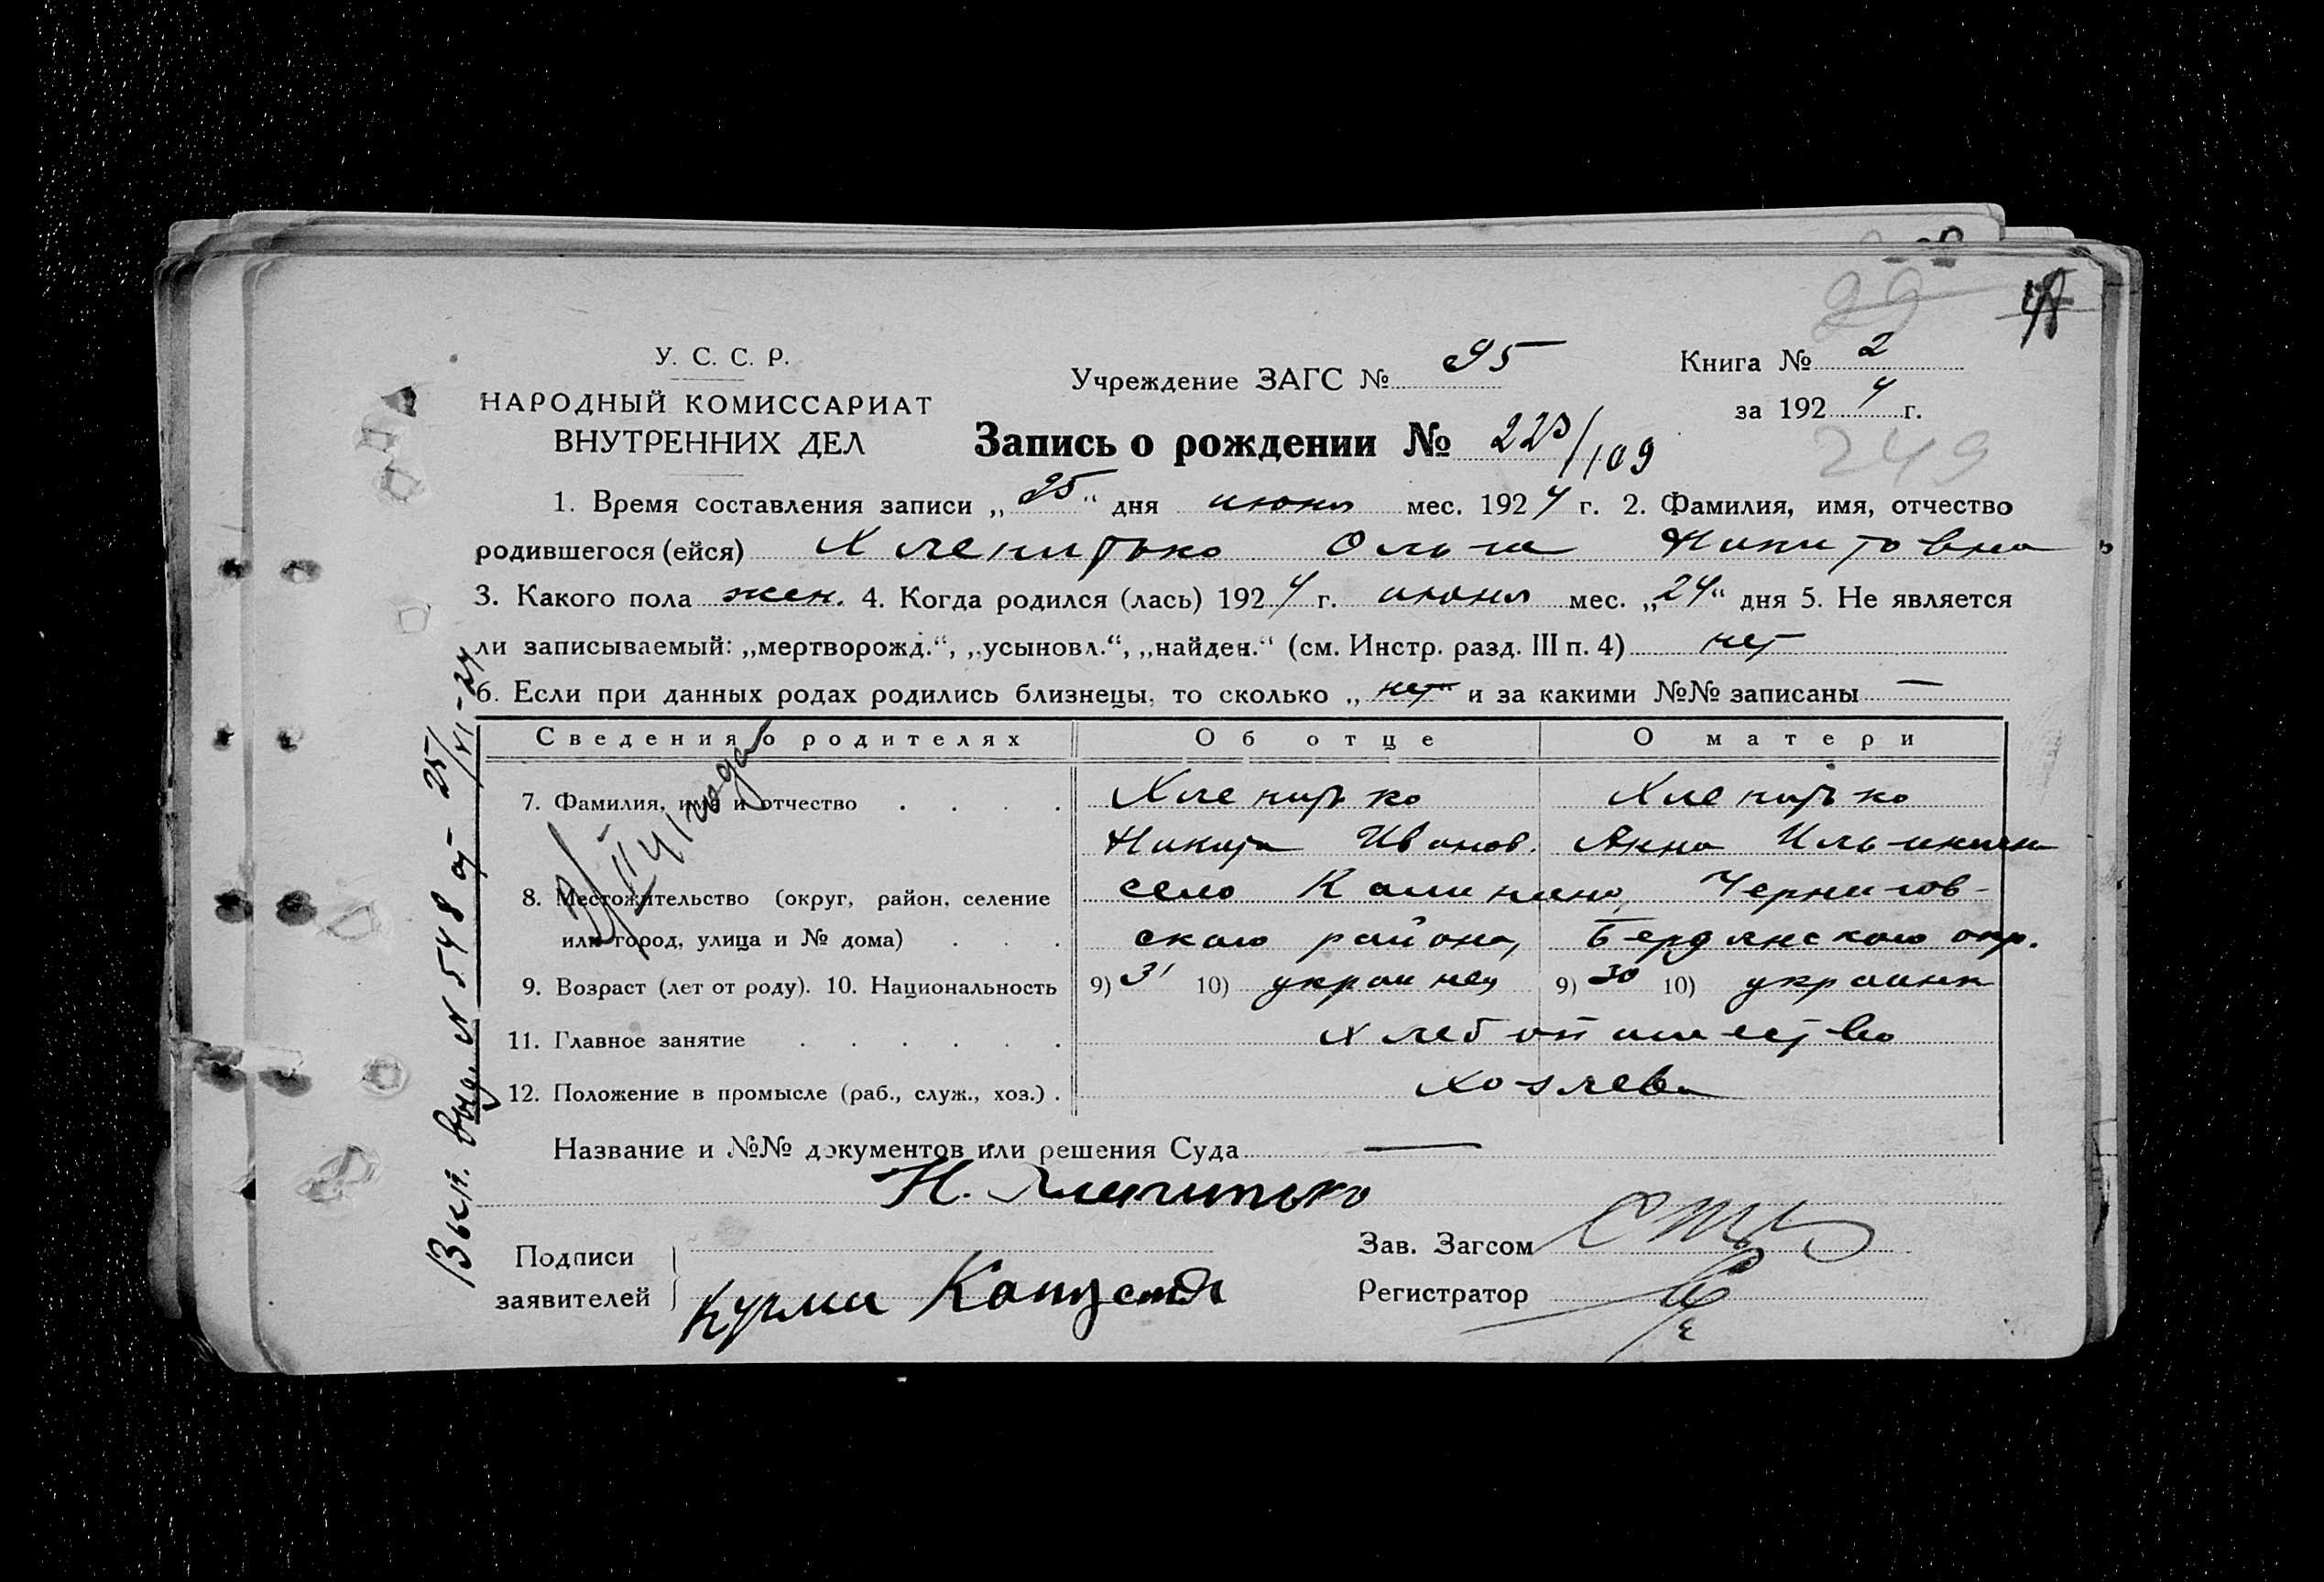 У. С. С. Р.
НАРОДНЫЙ КОМИССАРИАТ
ВНУТРЕННИХ ДЕЛ
Учреждение ЗАГС № 95
Книга № 2
за 1924 г.
Запись о рождении № 223/109
249
1. Время составления записи „25“ дня июня мес. 1924 г. 2. Фамилия, имя, отчество
родившегося (ейся) Хленитько Ольга Никитовна
3. Какого пола жен. 4. Когда родился (лась) 1924 г. июня мес. „24“ дня 5. Не является
ли записываемый: „мертворожд.“, „усыновл.“, „найден.“ (см. Инстр. разд. III п. 4) нет
6. Если при данных родах родились близнецы, то сколько „нет“ и за какими №№ записаны —
Сведения о родителях Об отце О матери
7. Фамилия, имя и отчество . . . . Хленитько Хленитько
Никита Иванов. Анна Ильинична
8. Местожительство (округ, район, селение село Калиновка, Чернигов-
или город, улица и № дома) . . . ского района, Бердянского окр.
9. Возраст (лет от роду). 10. Национальность 9) 31 10) украинец 9) 30 10) украинка
11. Главное занятие . . . . . . хлебопашество
12. Положение в промысле (раб., служ., хоз.) . хозяева
Название и №№ документов или решения Суда —
Н. Хленитько
Подписи
заявителей
Капуста
Зав. Загсом
Регистратор
Вып. выд. № 548 от 25/VI-24